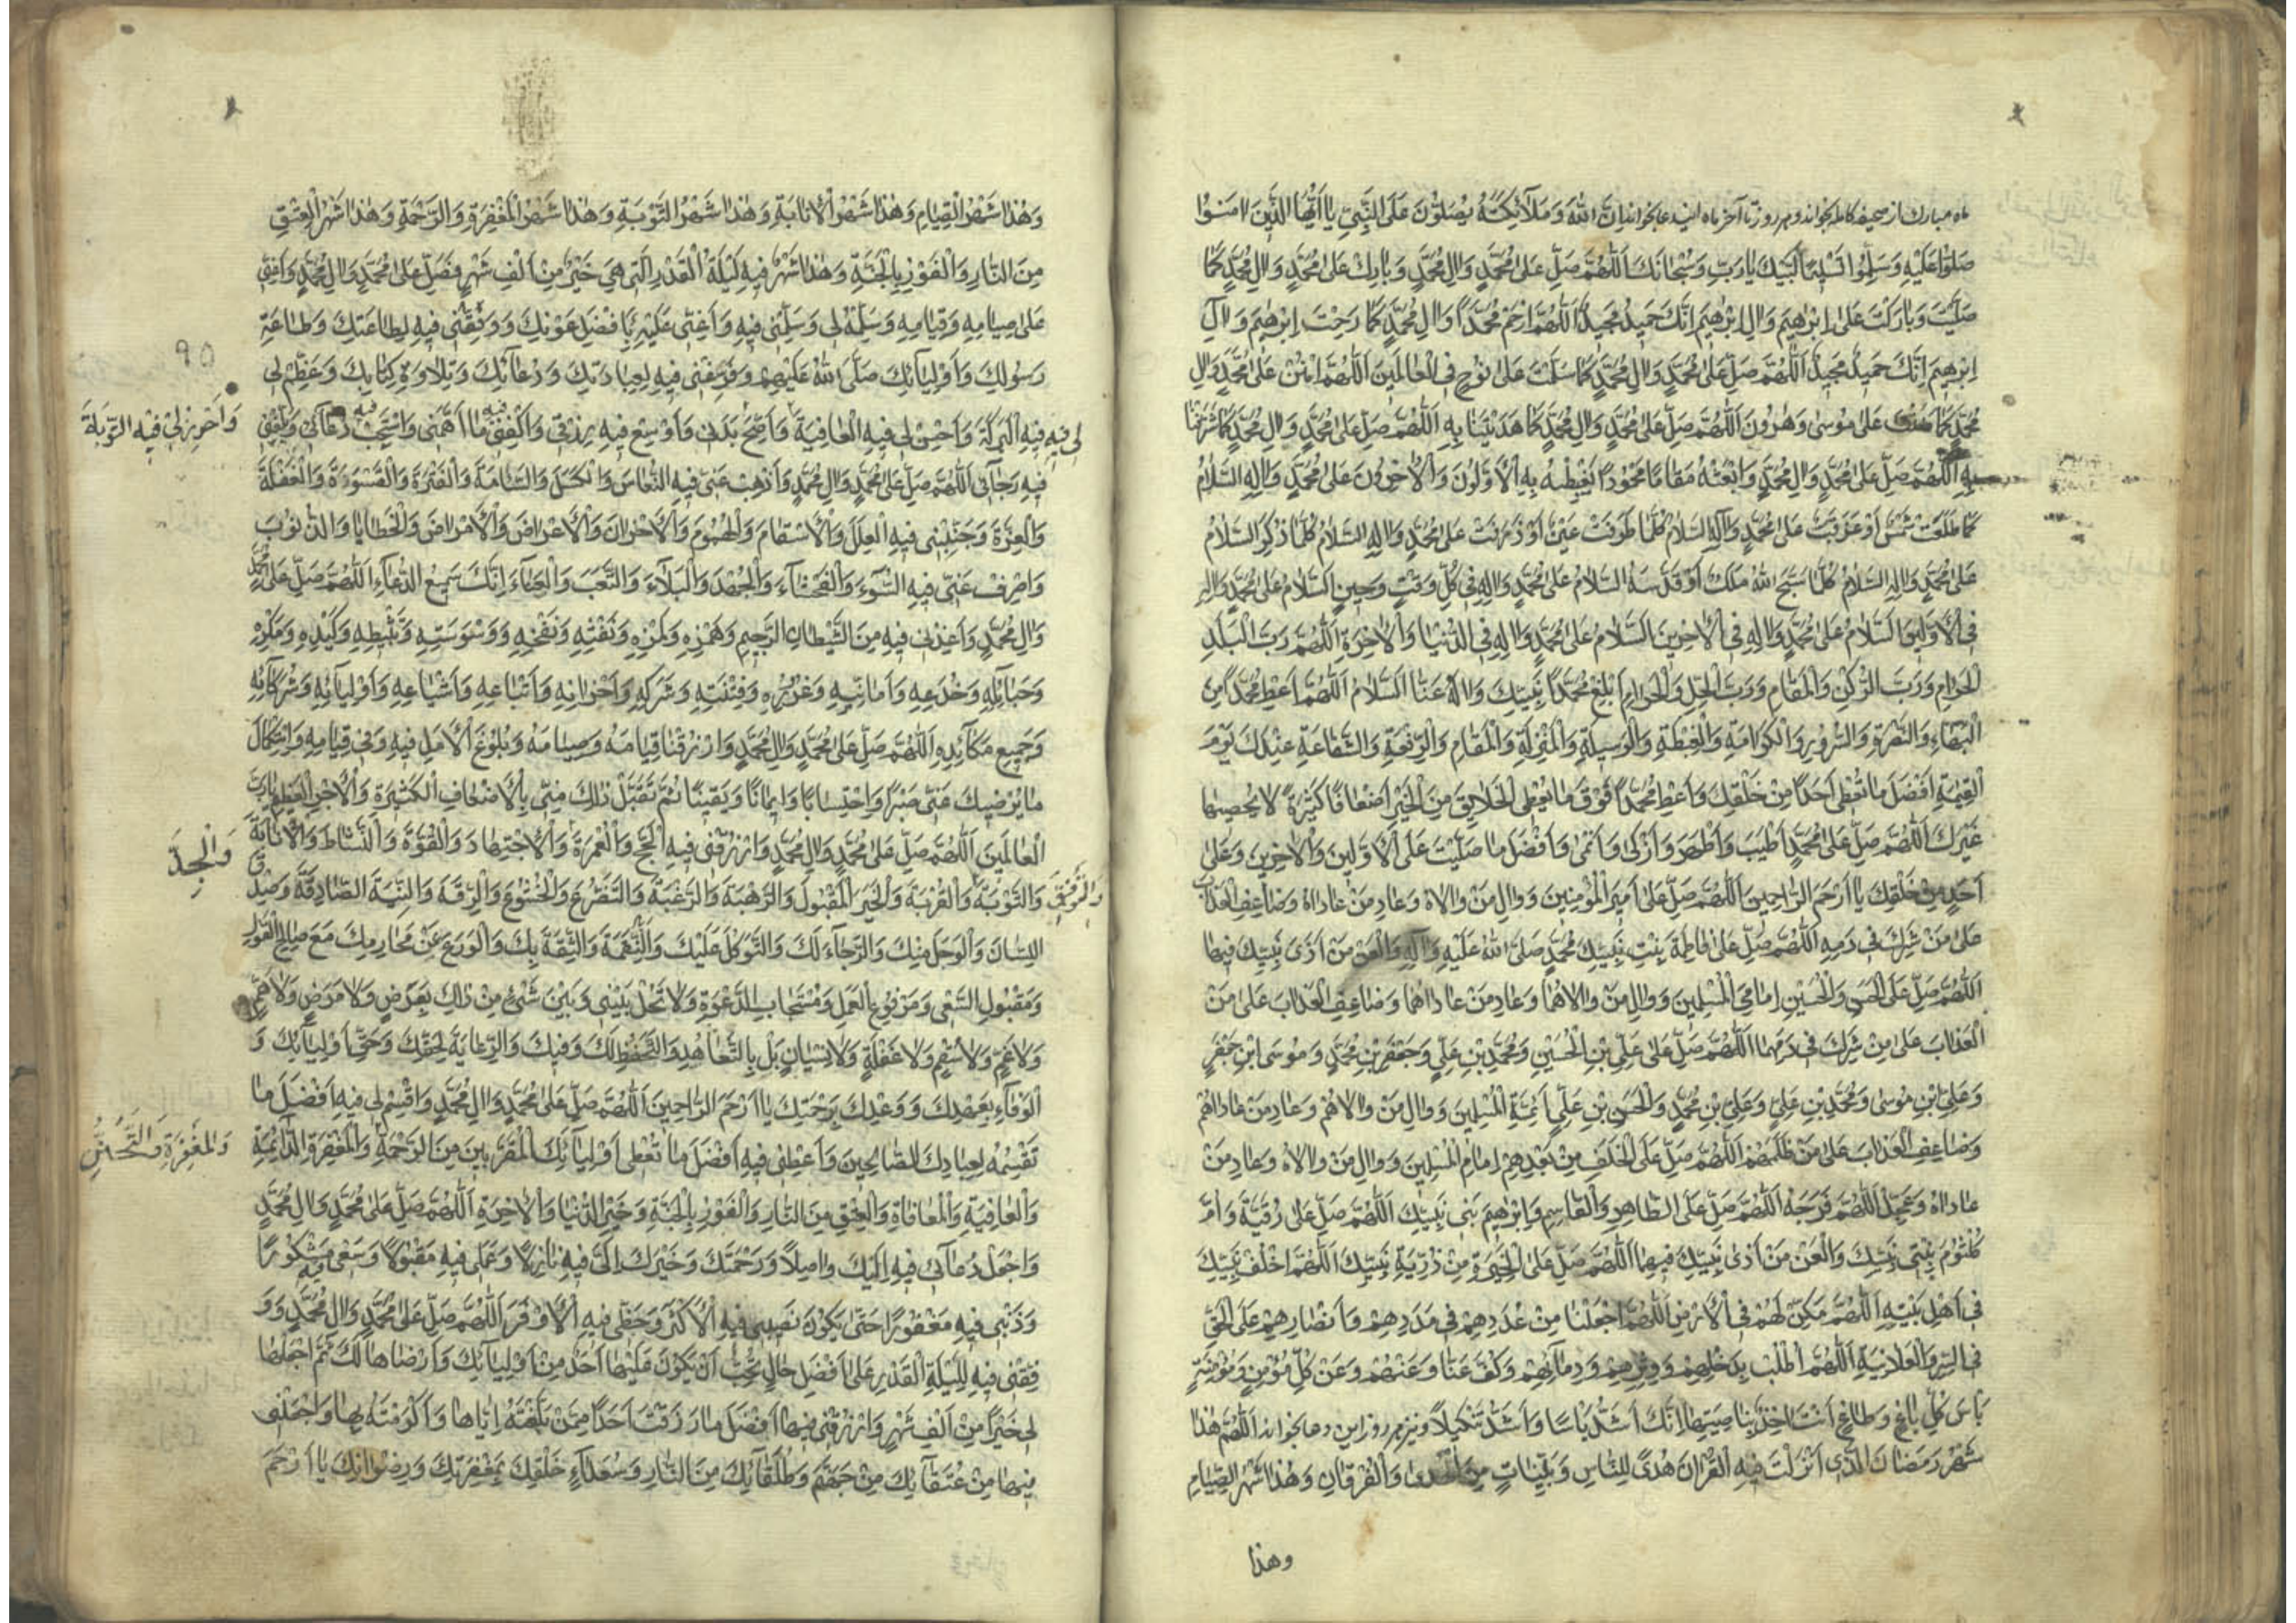 ماه مبارک از صحیفه کامله بخواند و هر روز تا آخر ماه این دعا بخواند اِنَّ اللّٰهَ وَمَلٰآئِکَتَهُ یُصَلُّوْنَ عَلَی النَّبِیِّ یٰا اَیُّهَا الَّذِیْنَ اٰمَنُوْا
صَلُّوْا عَلَیْهِ وَسَلِّمُوْا تَسْلِیْمًا لَبَّیْکَ یٰا رَبِّ وَسُبْحٰانَکَ اَللّٰهُمَّ صَلِّ عَلٰی مُحَمَّدٍ وَاٰلِ مُحَمَّدٍ وَبٰارِکْ عَلٰی مُحَمَّدٍ وَاٰلِ مُحَمَّدٍ کَمٰا
صَلَّیْتَ وَبٰارَکْتَ عَلٰی اِبْرٰهِیْمَ وَاٰلِ اِبْرٰهِیْمَ اِنَّکَ حَمِیْدٌ مَجِیْدٌ اَللّٰهُمَّ ارْحَمْ مُحَمَّدًا وَاٰلَ مُحَمَّدٍ کَمٰا رَحِمْتَ اِبْرٰهِیْمَ وَاٰلَ
اِبْرٰهِیْمَ اِنَّکَ حَمِیْدٌ مَجِیْدٌ اَللّٰهُمَّ صَلِّ عَلٰی مُحَمَّدٍ وَاٰلِ مُحَمَّدٍ کَمٰا سَلَّمْتَ عَلٰی نُوْحٍ فِی الْعٰالَمِیْنَ اَللّٰهُمَّ امْنُنْ عَلٰی مُحَمَّدٍ وَاٰلِ
مُحَمَّدٍ کَمٰا عَلٰی مُوْسٰی وَهٰرُوْنَ اَللّٰهُمَّ صَلِّ عَلٰی مُحَمَّدٍ وَاٰلِ مُحَمَّدٍ کَمٰا هَدَیْتَنٰا بِهِ اَللّٰهُمَّ صَلِّ عَلٰی مُحَمَّدٍ وَاٰلِ مُحَمَّدٍ کَمٰا شَرَّفْتَنٰا
بِهِ اَللّٰهُمَّ صَلِّ عَلٰی مُحَمَّدٍ وَاٰلِ مُحَمَّدٍ وَابْعَثْهُ مَقٰامًا مَحْمُوْدًا یَغْبِطُهُ بِهِ الْاَوَّلُوْنَ وَالْاٰخِرُوْنَ عَلٰی مُحَمَّدٍ وَاٰلِهِ السَّلٰامُ
کَمٰا طَلَعَتْ شَمْسٌ اَوْ غَرَبَتْ عَلٰی مُحَمَّدٍ وَاٰلِهِ السَّلٰامُ کُلَّمٰا طَرَفَتْ عَیْنٌ اَوْ ذَرَفَتْ عَلٰی مُحَمَّدٍ وَاٰلِهِ السَّلٰامُ کُلَّمٰا ذُکِرَ السَّلٰامُ
عَلٰی مُحَمَّدٍ وَاٰلِهِ السَّلٰامُ کُلَّمٰا سَبَّحَ اللّٰهَ مَلَکٌ اَوْ قَدَّسَهُ السَّلٰامُ عَلٰی مُحَمَّدٍ وَاٰلِهِ فِی کُلِّ وَقْتٍ وَحِیْنٍ اَلسَّلٰامُ عَلٰی مُحَمَّدٍ وَاٰلِهِ
فِی الْاَوَّلِیْنَ اَلسَّلٰامُ عَلٰی مُحَمَّدٍ وَاٰلِهِ فِی الْاٰخِرِیْنَ السَّلٰامُ عَلٰی مُحَمَّدٍ وَاٰلِهِ فِی الدُّنْیٰا وَالْاٰخِرَةِ اَللّٰهُمَّ رَبَّ الْبَلَدِ
الْحَرٰامِ وَرَبَّ الرُّکْنِ وَالْمَقٰامِ وَرَبَّ الْحِلِّ وَالْحَرٰامِ اَبْلِغْ مُحَمَّدًا نَبِیَّکَ وَاٰلَهُ عَنَّا السَّلٰامَ اَللّٰهُمَّ اَعْطِ مُحَمَّدًا مِنَ
الْبَهٰاءِ وَالنَّضْرَةِ وَالسُّرُوْرِ وَالْکَرٰامَةِ وَالْغِبْطَةِ وَالْوَسِیْلَةِ وَالْمَنْزِلَةِ وَالْمَقٰامِ وَالرِّفْعَةِ وَالشَّفٰاعَةِ عِنْدَکَ یَوْمَ
الْقِیٰمَةِ اَفْضَلَ مٰا تُعْطِی اَحَدًا مِنْ خَلْقِکَ وَاَعْطِ مُحَمَّدًا فَوْقَ مٰا تُعْطِی الْخَلٰایِقَ مِنَ الْخَیْرِ اَضْعٰافًا کَثِیْرَةً لٰا یُحْصِیْهٰا
غَیْرُکَ اَللّٰهُمَّ صَلِّ عَلٰی مُحَمَّدٍ اَطْیَبَ وَاَطْهَرَ وَاَزْکٰی وَاَنْمٰی وَاَفْضَلَ مٰا صَلَّیْتَ عَلَی الْاَوَّلِیْنَ وَالْاٰخِرِیْنَ وَعَلٰی
اَحَدٍ مِنْ خَلْقِکَ یٰا اَرْحَمَ الرّٰاحِمِیْنَ اَللّٰهُمَّ صَلِّ عَلٰی اَمِیْرِ الْمُؤْمِنِیْنَ وَوٰالِ مَنْ وٰالٰاهُ وَعٰادِ مَنْ عٰادٰاهُ وَضٰاعِفِ الْعَذٰابَ
عَلٰی مَنْ شَرِکَ فِی دَمِهِ اَللّٰهُمَّ صَلِّ عَلٰی فٰاطِمَةَ بِنْتِ نَبِیِّکَ مُحَمَّدٍ صَلَّی اللّٰهُ عَلَیْهِ وَاٰلِهِ وَالْعَنْ مَنْ اٰذٰی نَبِیَّکَ فِیْهٰا
اَللّٰهُمَّ صَلِّ عَلَی الْحَسَنِ وَالْحُسَیْنِ اِمٰامَیِ الْمُسْلِمِیْنَ وَوٰالِ مَنْ وٰالٰاهُمٰا وَعٰادِ مَنْ عٰادٰاهُمٰا وَضٰاعِفِ الْعَذٰابَ عَلٰی مَنْ
الْعَذٰابَ عَلٰی مَنْ شَرِکَ فِی دَمِهِمٰا اَللّٰهُمَّ صَلِّ عَلٰی عَلِیِّ بْنِ الْحُسَیْنِ وَمُحَمَّدِ بْنِ عَلِیٍّ وَجَعْفَرِ بْنِ مُحَمَّدٍ وَمُوْسَی ابْنِ جَعْفَرٍ
وَعَلِیِّ بْنِ مُوْسٰی وَمُحَمَّدِ بْنِ عَلِیٍّ وَعَلِیِّ بْنِ مُحَمَّدٍ وَالْحَسَنِ بْنِ عَلِیٍّ اَئِمَّةِ الْمُسْلِمِیْنَ وَوٰالِ مَنْ وٰالٰاهُمْ وَعٰادِ مَنْ عٰادٰاهُمْ
وَضٰاعِفِ الْعَذٰابَ عَلٰی مَنْ ظَلَمَهُمْ اَللّٰهُمَّ صَلِّ عَلَی الْخَلَفِ مِنْ بَعْدِهِمْ اِمٰامِ الْمُسْلِمِیْنَ وَوٰالِ مَنْ وٰالٰاهُ وَعٰادِ مَنْ
عٰادٰاهُ وَعَجِّلْ اَللّٰهُمَّ فَرَجَهُ اَللّٰهُمَّ صَلِّ عَلَی الطّٰاهِرِ وَالْقٰاسِمِ وَاِبْرٰهِیْمَ بَنِی نَبِیِّکَ اَللّٰهُمَّ صَلِّ عَلٰی رُقَیَّةَ وَاُمِّ
کُلْثُوْمَ بِنْتَی نَبِیِّکَ وَالْعَنْ مَنْ اٰذٰی نَبِیَّکَ فِیْهِمٰا اَللّٰهُمَّ صَلِّ عَلَی الْخِیَرَةِ مِنْ ذُرِّیَّةِ نَبِیِّکَ اَللّٰهُمَّ اخْلُفْ نَبِیَّکَ
فِی اَهْلِ بَیْتِهِ اَللّٰهُمَّ مَکِّنْ لَهُمْ فِی الْاَرْضِ اَللّٰهُمَّ اجْعَلْنٰا مِنْ عَدَدِهِمْ فِی مَدَدِهِمْ وَاَنْصٰارِهِمْ عَلَی الْحَقِّ
فِی السِّرِّ وَالْعَلٰانِیَةِ اَللّٰهُمَّ اطْلُبْ بِذَحْلِهِمْ وَوِتْرِهِمْ وَدِمٰائِهِمْ وَکُفَّ عَنّٰا وَعَنْهُمْ وَعَنْ کُلِّ مُؤْمِنٍ وَمُؤْمِنَةٍ
بَاْسَ کُلِّ بٰاغٍ وَطٰاغٍ اَنْتَ اٰخِذٌ بِنٰاصِیَتِهٰا اِنَّکَ اَشَدُّ بَاْسًا وَاَشَدُّ تَنْکِیْلًا و نیز هر روز این دعا بخواند اَللّٰهُمَّ هٰذٰا
شَهْرُ رَمَضٰانَ الَّذِی اَنْزَلْتَ فِیْهِ الْقُرْاٰنَ هُدًی لِلنّٰاسِ وَبَیِّنٰاتٍ مِنَ الْهُدٰی وَالْفُرْقٰانِ وَهٰذٰا شَهْرُ الصِّیٰامِ
وهذا
وَهٰذٰا شَهْرُ الْقِیٰامِ وَهٰذٰا شَهْرُ الْاِنٰابَةِ وَهٰذٰا شَهْرُ التَّوْبَةِ وَهٰذٰا شَهْرُ الْمَغْفِرَةِ وَالرَّحْمَةِ وَهٰذٰا شَهْرُ الْعِتْقِ
مِنَ النّٰارِ وَالْفَوْزِ بِالْجَنَّةِ وَهٰذٰا شَهْرٌ فِیْهِ لَیْلَةُ الْقَدْرِ الَّتِی هِیَ خَیْرٌ مِنْ اَلْفِ شَهْرٍ فَصَلِّ عَلٰی مُحَمَّدٍ وَاٰلِ مُحَمَّدٍ وَاَعِنِّی
عَلٰی صِیٰامِهِ وَقِیٰامِهِ وَسَلِّمْهُ لِی وَسَلِّمْنِی فِیْهِ وَاَعِنِّی عَلَیْهِ بِاَفْضَلِ عَوْنِکَ وَوَفِّقْنِی فِیْهِ لِطٰاعَتِکَ وَطٰاعَةِ
رَسُوْلِکَ وَاَوْلِیٰآئِکَ صَلَّی اللّٰهُ عَلَیْهِمْ وَفَرِّغْنِی فِیْهِ لِعِبٰادَتِکَ وَدُعٰآئِکَ وَتِلٰاوَةِ کِتٰابِکَ وَعَظِّمْ لِی
٩٥
لِی فِیْهِ فِیْهِ الْبَرَکَةَ وَاَحْسِنْ لِی فِیْهِ الْعٰافِیَةَ وَاَصِحَّ بَدَنِی وَاَوْسِعْ فِیْهِ رِزْقِی وَاکْفِنِی فِیْهِ مٰا اَهَمَّنِی وَاسْتَجِبْ فِیْهِ دُعٰآئِی وَبَلِّغْنِی
وَاَحْرِزْ لِی فِیْهِ التَّوْبَةَ
فِیْهِ رَجٰآئِی اَللّٰهُمَّ صَلِّ عَلٰی مُحَمَّدٍ وَاٰلِ مُحَمَّدٍ وَاَذْهِبْ عَنِّی فِیْهِ النُّعٰاسَ وَالْکَسَلَ وَالسَّاٰمَةَ وَالْفَتْرَةَ وَالْقَسْوَةَ وَالْغَفْلَةَ
وَالْغِرَّةَ وَجَنِّبْنِی فِیْهِ الْعِلَلَ وَالْاَسْقٰامَ وَالْهُمُوْمَ وَالْاَحْزٰانَ وَالْاَعْرٰاضَ وَالْاَمْرٰاضَ وَالْخَطٰایٰا وَالذُّنُوْبَ
وَاصْرِفْ عَنِّی فِیْهِ السُّوْٓءَ وَالْفَحْشٰآءَ وَالْجُهْدَ وَالْبَلٰآءَ وَالتَّعَبَ وَالْعَنٰآءَ اِنَّکَ سَمِیْعُ الدُّعٰآءِ اَللّٰهُمَّ صَلِّ عَلٰی مُحَمَّدٍ
وَاٰلِ مُحَمَّدٍ وَاَعِذْنِی فِیْهِ مِنَ الشَّیْطٰانِ الرَّجِیْمِ وَهَمْزِهِ وَلَمْزِهِ وَنَفْثِهِ وَنَفْخِهِ وَوَسْوَسَتِهِ وَتَثْبِیْطِهِ وَکَیْدِهِ وَمَکْرِهِ
وَحَبٰائِلِهِ وَخُدَعِهِ وَاَمٰانِیِّهِ وَغُرُوْرِهِ وَفِتْنَتِهِ وَشَرَکِهِ وَاَحْزٰابِهِ وَاَتْبٰاعِهِ وَاَشْیٰاعِهِ وَاَوْلِیٰآئِهِ وَشُرَکٰآئِهِ
وَجَمِیْعِ مَکٰآئِدِهِ اَللّٰهُمَّ صَلِّ عَلٰی مُحَمَّدٍ وَاٰلِ مُحَمَّدٍ وَارْزُقْنٰا قِیٰامَهُ وَصِیٰامَهُ وَبُلُوْغَ الْاَمَلِ فِیْهِ وَفِی قِیٰامِهِ وَاسْتِکْمٰالَ
مٰا یُرْضِیْکَ عَنِّی صَبْرًا وَاحْتِسٰابًا وَاِیْمٰانًا وَیَقِیْنًا ثُمَّ تَقَبَّلْ ذٰلِکَ مِنِّی بِالْاَضْعٰافِ الْکَثِیْرَةِ وَالْاَجْرِ الْعَظِیْمِ یٰا رَبَّ
الْعٰالَمِیْنَ اَللّٰهُمَّ صَلِّ عَلٰی مُحَمَّدٍ وَاٰلِ مُحَمَّدٍ وَارْزُقْنِی فِیْهِ الْحَجَّ وَالْعُمْرَةَ وَالْاِجْتِهٰادَ وَالْقُوَّةَ وَالنَّشٰاطَ وَالْاِنٰابَةَ
وَالْجِدَّ
وَالتَّوْفِیْقَ وَالتَّوْبَةَ وَالْقُرْبَةَ وَالْخَیْرَ الْمَقْبُوْلَ وَالرَّهْبَةَ وَالرَّغْبَةَ وَالتَّضَرُّعَ وَالْخُشُوْعَ وَالرِّقَّةَ وَالنِّیَّةَ الصّٰادِقَةَ وَصِدْقَ
اللِّسٰانِ وَالْوَجَلَ مِنْکَ وَالرَّجٰآءَ لَکَ وَالتَّوَکُّلَ عَلَیْکَ وَالثِّقَةَ بِکَ وَالْوَرَعَ عَنْ مَحٰارِمِکَ مَعَ صٰالِحِ الْقَوْلِ
وَمَقْبُوْلِ السَّعْیِ وَمَرْفُوْعِ الْعَمَلِ وَمُسْتَجٰابِ الدَّعْوَةِ وَلٰا تَحُلْ بَیْنِی وَبَیْنَ شَیْءٍ مِنْ ذٰلِکَ بِعَرَضٍ وَلٰا مَرَضٍ وَلٰا هَمٍّ
وَلٰا غَمٍّ وَلٰا سُقْمٍ وَلٰا غَفْلَةٍ وَلٰا نِسْیٰانٍ بَلْ بِالتَّعٰاهُدِ وَالتَّحَفُّظِ لَکَ وَفِیْکَ وَالرِّعٰایَةِ لِحَقِّکَ وَحَقِّ اَوْلِیٰآئِکَ وَ
الْوَفٰآءِ بِعَهْدِکَ وَوَعْدِکَ بِرَحْمَتِکَ یٰا اَرْحَمَ الرّٰاحِمِیْنَ اَللّٰهُمَّ صَلِّ عَلٰی مُحَمَّدٍ وَاٰلِ مُحَمَّدٍ وَاقْسِمْ لِی فِیْهِ اَفْضَلَ مٰا
تَقْسِمُهُ لِعِبٰادِکَ الصّٰالِحِیْنَ وَاَعْطِنِی فِیْهِ اَفْضَلَ مٰا تُعْطِی اَوْلِیٰآئَکَ الْمُقَرَّبِیْنَ مِنَ الرَّحْمَةِ وَالْمَغْفِرَةِ الدّٰائِمَةِ
وَالْمَغْفِرَةِ وَالتَّحَنُّنِ
وَالْعٰافِیَةِ وَالْمُعٰافٰاةِ وَالْعِتْقِ مِنَ النّٰارِ وَالْفَوْزِ بِالْجَنَّةِ وَخَیْرِ الدُّنْیٰا وَالْاٰخِرَةِ اَللّٰهُمَّ صَلِّ عَلٰی مُحَمَّدٍ وَاٰلِ مُحَمَّدٍ
وَاجْعَلْ دُعٰآئِی فِیْهِ اِلَیْکَ وٰاصِلًا وَرَحْمَتَکَ وَخَیْرَکَ اِلَیَّ فِیْهِ نٰازِلًا وَعَمَلِی فِیْهِ مَقْبُوْلًا وَسَعْیِی فِیْهِ مَشْکُوْرًا
وَذَنْبِی فِیْهِ مَغْفُوْرًا حَتّٰی یَکُوْنَ نَصِیْبِی فِیْهِ الْاَکْثَرَ وَحَظِّی فِیْهِ الْاَوْفَرَ اَللّٰهُمَّ صَلِّ عَلٰی مُحَمَّدٍ وَاٰلِ مُحَمَّدٍ وَوَ
فِّقْنِی فِیْهِ لِلَیْلَةِ الْقَدْرِ عَلٰی اَفْضَلِ حٰالٍ تُحِبُّ اَنْ یَکُوْنَ عَلَیْهٰا اَحَدٌ مِنْ اَوْلِیٰآئِکَ وَاَرْضٰاهٰا لَکَ ثُمَّ اجْعَلْهٰا
لِی خَیْرًا مِنْ اَلْفِ شَهْرٍ وَارْزُقْنِی فِیْهٰا اَفْضَلَ مٰا رَزَقْتَ اَحَدًا مِمَّنْ بَلَّغْتَهُ اِیّٰاهٰا وَاَکْرَمْتَهُ بِهٰا وَاجْعَلْنِی
فِیْهٰا مِنْ عُتَقٰآئِکَ مِنْ جَهَنَّمَ وَطُلَقٰآئِکَ مِنَ النّٰارِ وَسُعَدٰآءِ خَلْقِکَ بِمَغْفِرَتِکَ وَرِضْوٰانِکَ یٰا اَرْحَمَ